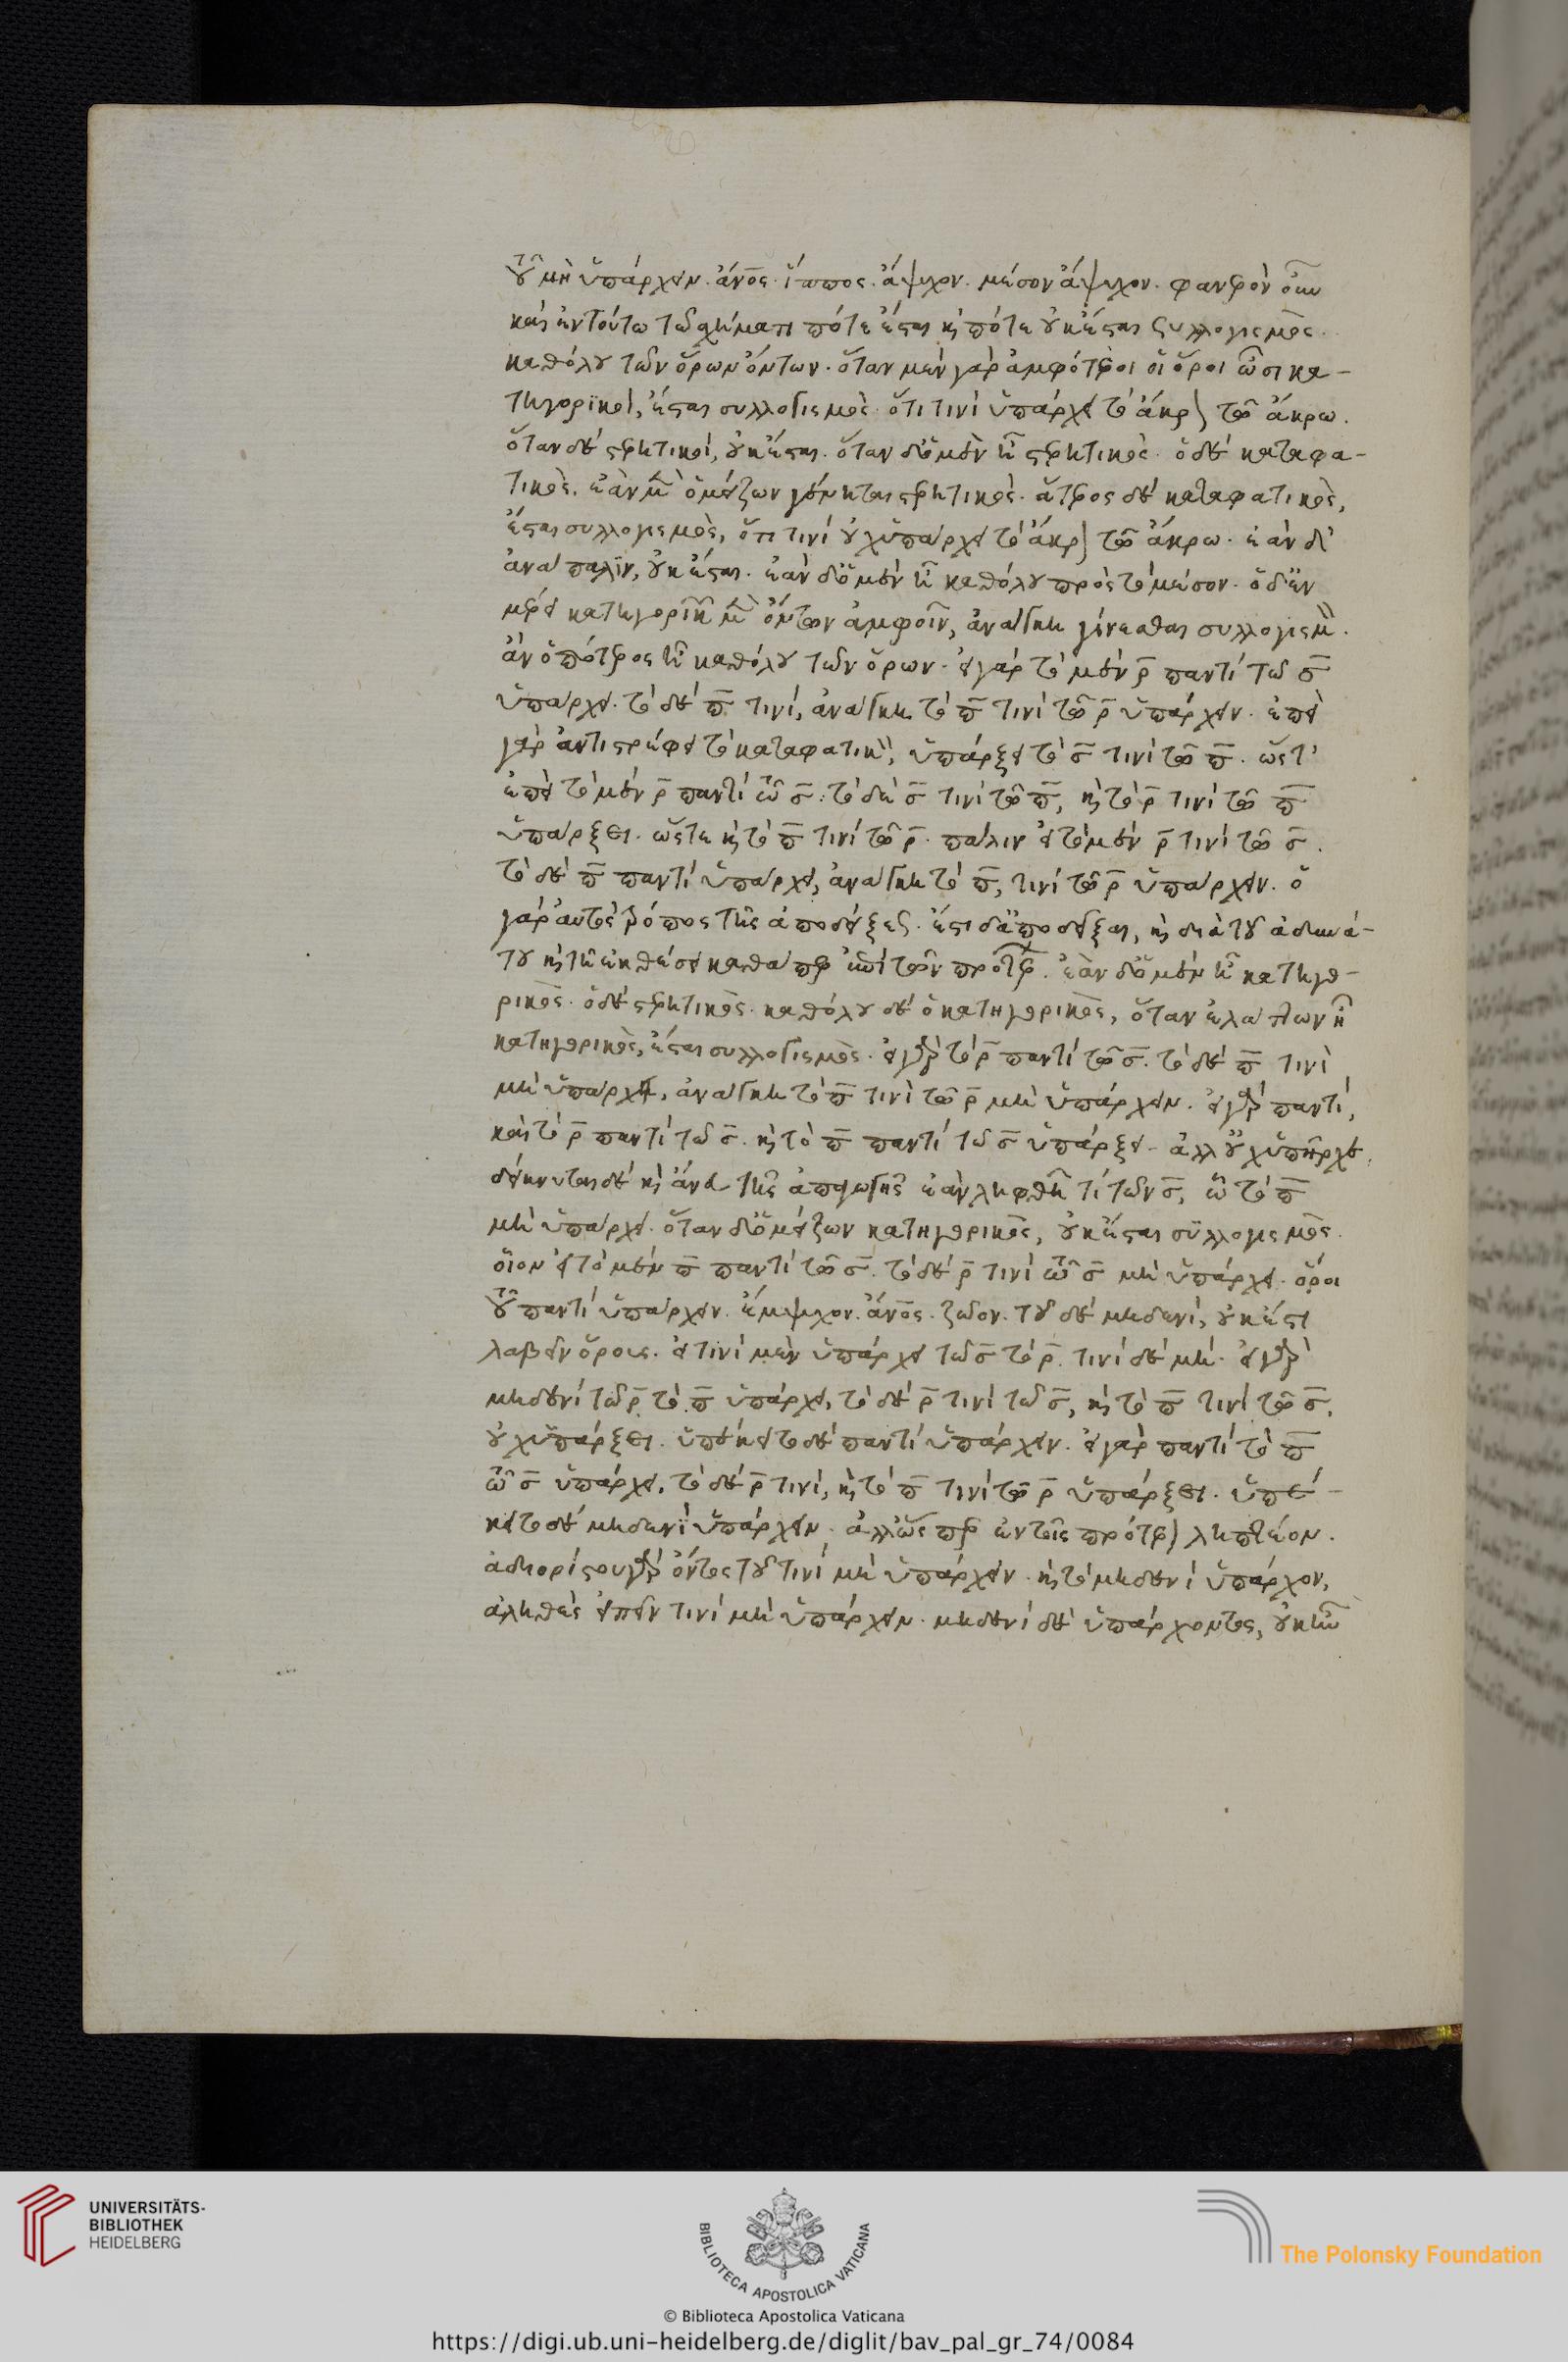 τοῦ μὴ ὑπάρχειν. ἄνος. ἵππος. ἄψυχον. μέσον ἄψυχον. φανερὸν οὖν
καὶ ἐν τούτω τῶ σχήματι πότε ἔσται κ πότε οὐκ ἔσται συλλογισμός.
καθόλου τῶν ὅρων ὄντων. ὅταν μὲν γὰρ ἀμφότεροι οἱ ὅροι ὦσι κα-
τηγορικοὶ, ἔσται συλλογισμός. ὅτι τινὶ ὑπάρχει τὸ ἄκρον τῶ ἄκρω.
ὅταν δὲ στερητικοί, οὐκ ἔσται. ὅταν δ ὁ μὲν ἦ στερητικὸς. ὁ δὲ καταφα-
τικὸς. ἐὰν μὲν ὁ μείζων γένηται στερητικὸς. ἅτερος δὲ καταφατικὸς,
ἔσται συλλογισμὸς, ὅτι τινὶ οὐχ ὑπάρχει τὸ ἄκρον τῶ ἄκρω. ἐὰν δ'
ἀνάπαλιν, οὐκ ἔσται. ἐὰν δ ὁ μὲν ἦ καθόλου πρὸς τὸ μέσον. ὁ δ ἐν
μέρει κατηγορικῶν μὲν ὄντων ἀμφοῖν, ἀνάγκη γίνεσθαι συλλογισμὸν.
ἂν ὁπότερος ἦ καθόλου τῶν ὅρων. εἰ γὰρ τὸ μὲν ρ̄ παντὶ τῶ σ̄
ὑπάρχει. τὸ δὲ π̄ τινί, ἀνάγκη τὸ π̄ τινὶ τῶ ρ̄ ὑπάρχειν. ἐπεὶ
γὰρ ἀντιστρέφει τὸ καταφατικὸν, ὑπάρξει τὸ σ̄ τινὶ τῶ π̄. ὥστ'
ἐπεὶ τὸ μὲν ρ̄ παντὶ τῶ σ̄. τὸ δὲ σ̄ τινὶ τῶ π̄, κ τὸ ρ̄ τινὶ τῶ π̄
ὑπάρξει. ὥστε κ τὸ π̄ τινὶ τῶ ρ̄. πάλιν εἰ τὸ μὲν ρ̄ τινὶ τῶ σ̄.
τὸ δὲ π̄ παντὶ ὑπάρχει, ἀνάγκη τὸ π̄, τινὶ τῶ ρ̄ ὑπάρχειν. ὁ
γὰρ αὐτὸς τρόπος τῆς ἀποδείξεως. ἔστι δ ἀποδεῖξαι, κ διὰ τοῦ ἀδυνά-
του κ τῆ ἐκθέσει καθάπερ ἐπὶ τῶν προτέρων. ἐὰν δ ὁ μὲν ἦ κατηγο-
ρικὸς. ὁ δὲ στερητικὸς. καθόλου δὲ ὁ κατηγορικὸς, ὅταν ἐλάττων ἦ
κατηγορικὸς, ἔσται συλλογισμὸς. εἰ γὰρ τὸ ρ̄ παντὶ τῶ σ̄. τὸ δὲ π̄ τινὶ
μὴ ὑπάρχει, ἀνάγκη τὸ π̄ τινὶ τῶ ρ̄ μὴ ὑπάρχειν. εἰ γὰρ παντί,
καὶ τὸ ρ̄ παντὶ τῶ σ̄. κ τὸ π̄ παντὶ τῶ σ̄ ὑπάρξει. ἀλλ οὐχ ὑπῆρχε.
δείκνυται δὲ κ ἄνευ τῆς ἀπαγωγῆς ἐὰν ληφθῆ τί τῶν σ̄, ὧ τὸ π̄
μὴ ὑπάρχει. ὅταν δ ὁ μείζων κατηγορικὸς, οὐκ ἔσται συλλογισμός.
οἷον εἰ τὸ μὲν π̄ παντὶ τῶ σ̄. τὸ δὲ ρ̄ τινὶ τῶ σ̄ μὴ ὑπάρχει. ὅροι
τοῦ παντὶ ὑπάρχειν. ἔμψυχον. ἄνος. ζῶον. τοῦ δὲ μηδενί, οὐκ ἔστι
λαβεῖν ὅρους. εἰ τινὶ μὲν ὑπάρχει τῶ σ̄ τὸ ρ̄. τινὶ δὲ μή. εἰ γὰρ
μηδενὶ τῶ ρ̄ τὸ π̄ ὑπάρχει, τὸ δὲ ρ̄ τινὶ τῶ σ̄, κ τὸ π̄ τινὶ τῶ σ̄,
οὐχ ὑπάρξει. ὑπέκειτο δὲ παντὶ ὑπάρχειν. εἰ γὰρ παντὶ τὸ π̄
τῶ σ̄ ὑπάρχει, τὸ δὲ ρ̄ τινί, κ τὸ π̄ τινὶ τῶ ρ̄ ὑπάρξει. ὑπέ-
κειτο δὲ μηδενὶ ὑπάρχειν. ἀλλ ὥσπερ ἐν τοῖς πρότερον ληπτέον.
ἀδιορίστου γὰρ ὄντος τοῦ τινὶ μὴ ὑπάρχειν. κ τὸ μηδενὶ ὑπάρχον,
ἀληθὲς εἰπεῖν τινὶ μὴ ὑπάρχειν. μηδενὶ δὲ ὑπάρχοντος, οὐκ ἦν
UNIVERSITÄTS-
BIBLIOTHEK
HEIDELBERG
BIBLIOTECA APOSTOLICA VATICANA
The Polonsky Foundation
© Biblioteca Apostolica Vaticana
https://digi.ub.uni-heidelberg.de/diglit/bav_pal_gr_74/0084